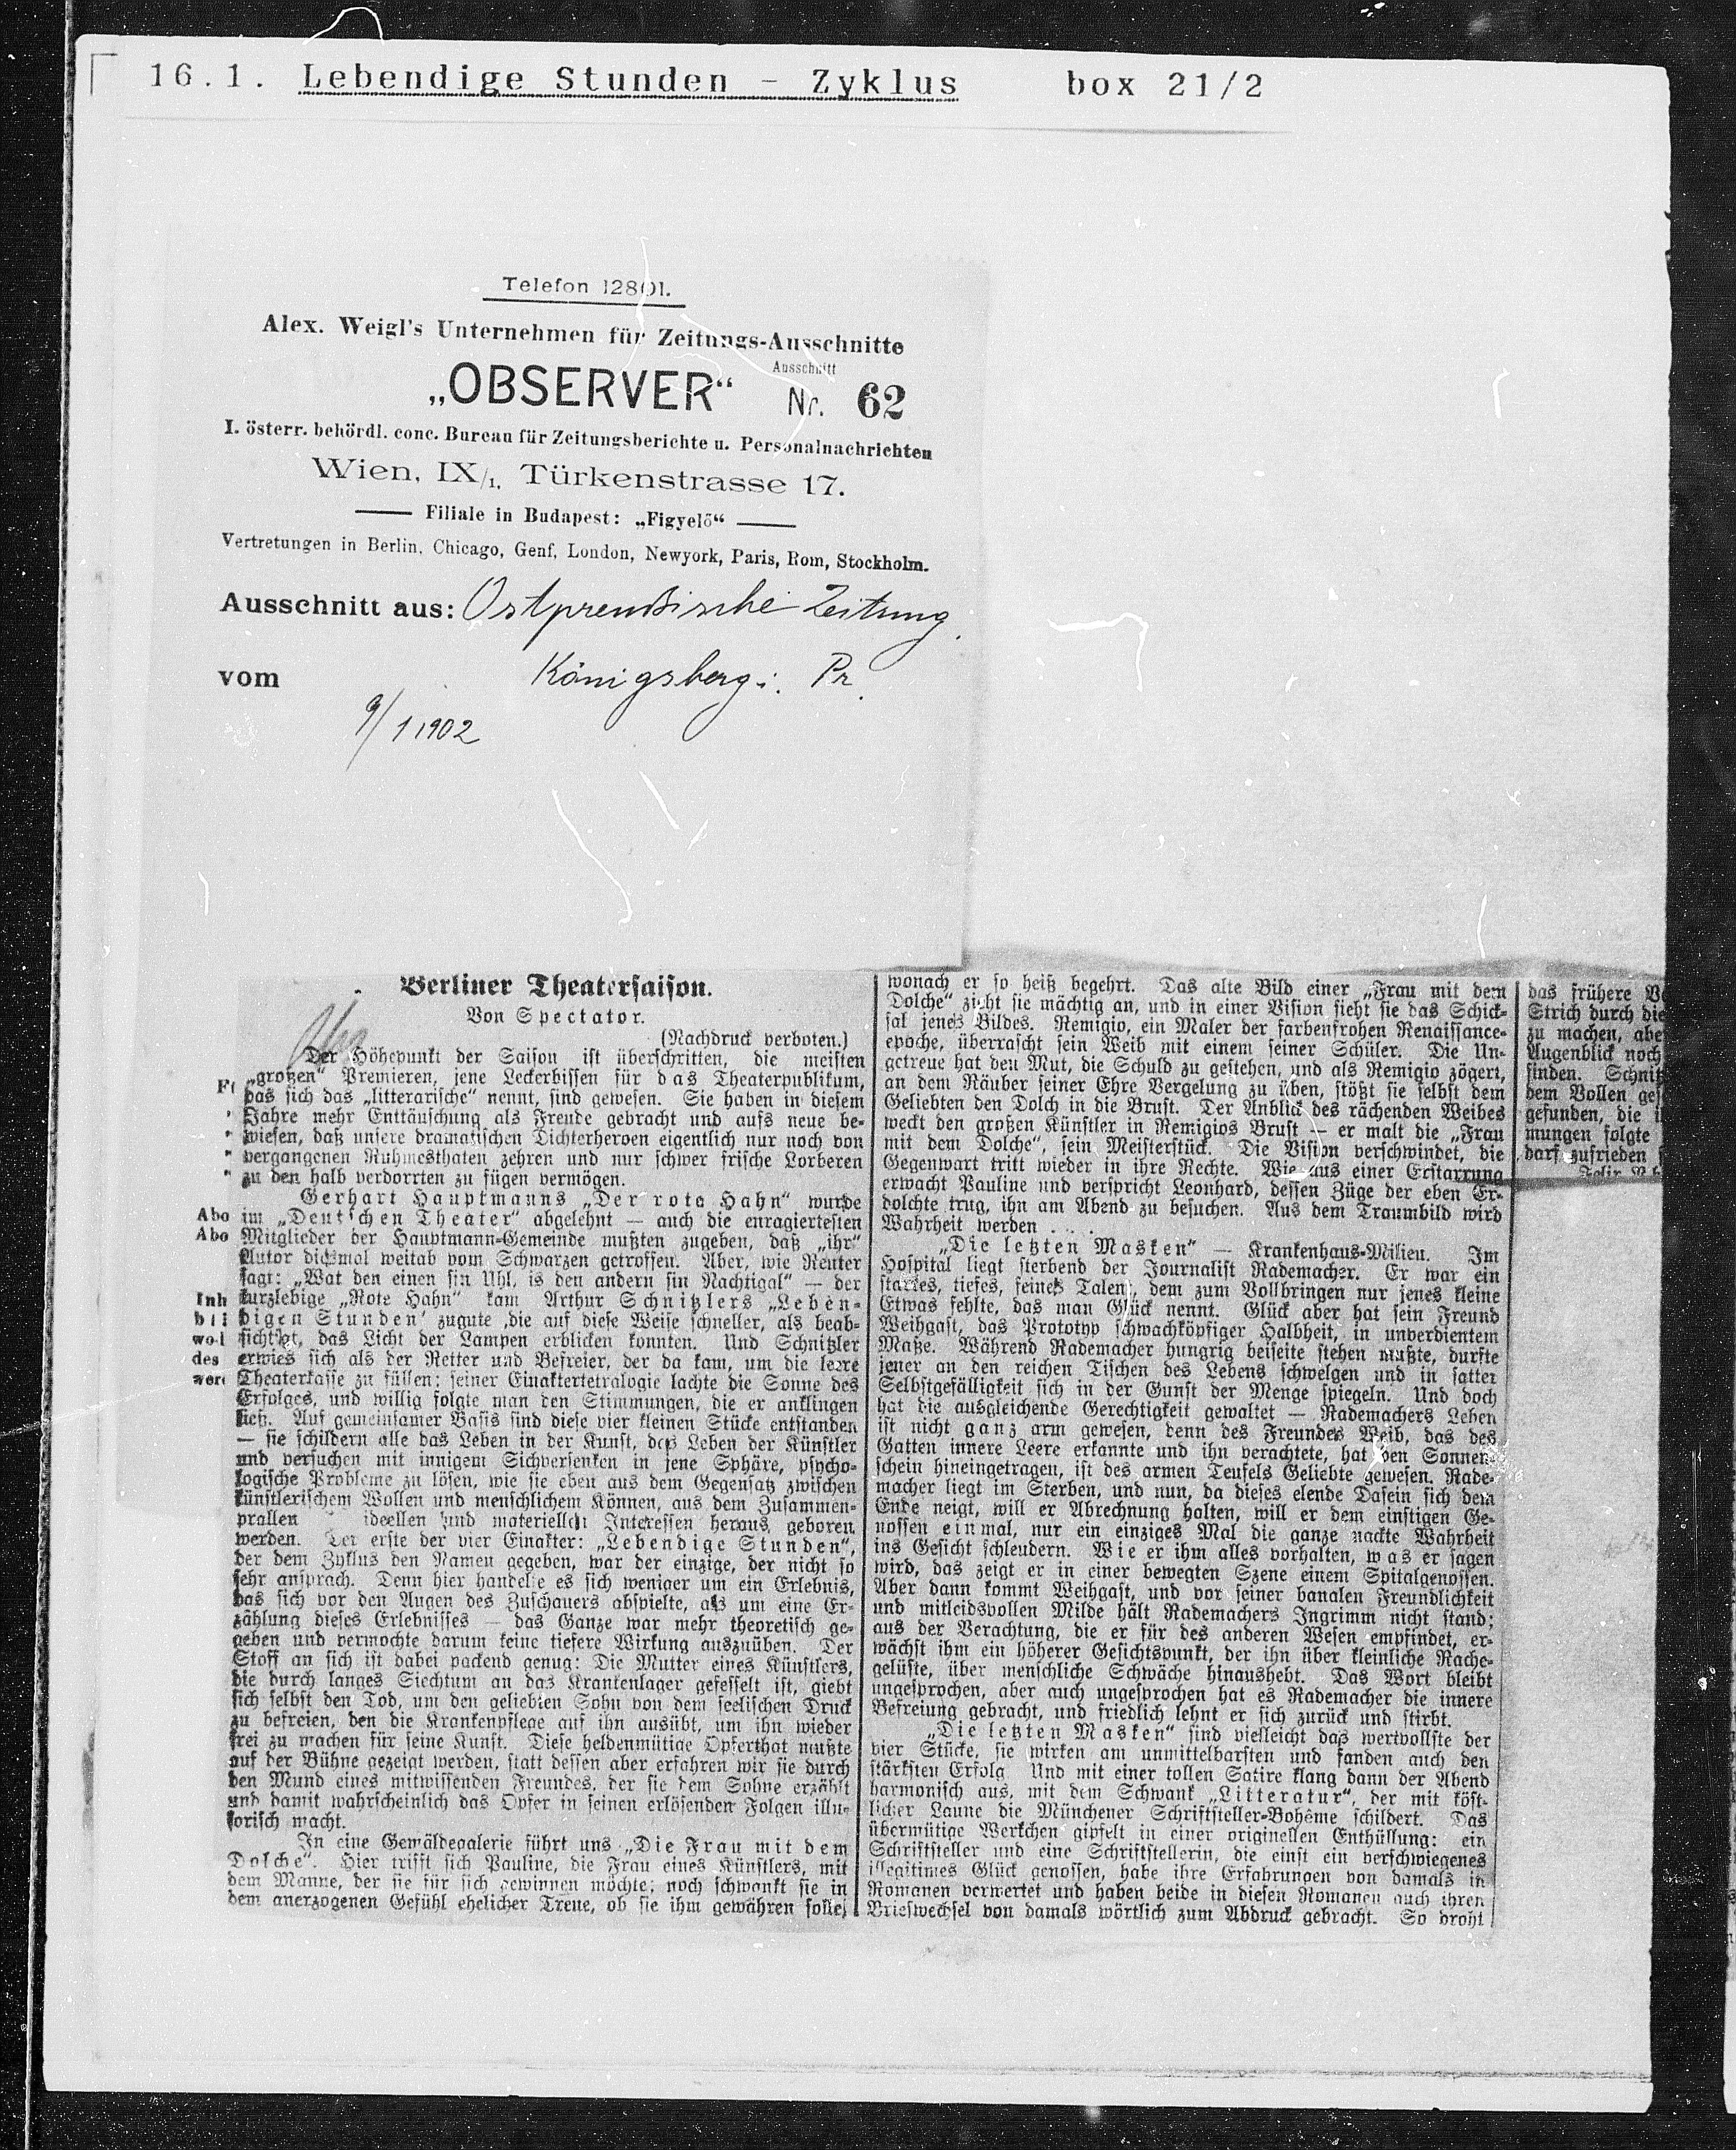 16.1. Lebendige Stunden - Zyklus box 21/2
Telefon 12801.
Alex. Weigl's Unternehmen für Zeitungs-Ausschnitte
„OBSERVER“ Ausschnitt Nr. 62
I. österr. behördl. conc. Bureau für Zeitungsberichte u. Personalnachrichten
Wien, IX/1, Türkenstrasse 17.
Filiale in Budapest: „Figyelő“
Vertretungen in Berlin, Chicago, Genf, London, Newyork, Paris, Rom, Stockholm.
Ausschnitt aus: Ostpreußische Zeitung
vom Königsberg i. Pr.
9/1 1902
Berliner Theatersaison.
Von Spectator.
(Nachdruck verboten.)
Der Höhepunkt der Saison ist überschritten, die meisten
„großen“ Premieren, jene Leckerbissen für das Theaterpublikum,
das sich das „litterarische“ nennt, sind gewesen. Sie haben in diesem
Jahre mehr Enttäuschung als Freude gebracht und aufs neue be-
wiesen, daß unsere dramatischen Dichterheroen eigentlich nur noch von
vergangenen Ruhmesthaten zehren und nur schwer frische Lorberen
zu den halb verdorrten zu fügen vermögen.
Gerhart Hauptmanns „Der rote Hahn“ wurde
im „Deutschen Theater“ abgelehnt — auch die enragiertesten
Mitglieder der Hauptmann-Gemeinde mußten zugeben, daß „ihr“
Autor diesmal weitab vom Schwarzen getroffen. Aber, wie Reuter
sagt: „Wat den einen sin Uhl, is den andern sin Nachtigal“ — der
kurzlebige „Rote Hahn“ kam Arthur Schnitzlers „Leben-
digen Stunden“ zugute ,die auf diese Weise schneller, als beab-
sichtigt, das Licht der Lampen erblicken konnten. Und Schnitzler
erwies sich als der Retter und Befreier, der da kam, um die leere
Theaterkasse zu füllen: seiner Einaktertetralogie lachte die Sonne des
Erfolges, und willig folgte man den Stimmungen, die er anklingen
ließ. Auf gemeinsamer Basis sind diese vier kleinen Stücke entstanden
— sie schildern alle das Leben in der Kunst, das Leben der Künstler
und versuchen mit innigem Sichversenken in jene Sphäre, psycho-
logische Probleme zu lösen, wie sie eben aus dem Gegensatz zwischen
künstlerischem Wollen und menschlichem Können, aus dem Zusammen-
prallen ideellen und materiellen Interessen heraus geboren
werden. Der erste der vier Einakter: „Lebendige Stunden“,
der dem Zyklus den Namen gegeben, war der einzige, der nicht so
sehr ansprach. Denn hier handelte es sich weniger um ein Erlebnis,
das sich vor den Augen des Zuschauers abspielte, als um eine Er-
zählung dieses Erlebnisses — das Ganze war mehr theoretisch ge-
geben und vermochte darum keine tiefere Wirkung auszuüben. Der
Stoff an sich ist dabei packend genug: Die Mutter eines Künstlers,
die durch langes Siechtum an das Krankenlager gefesselt ist, giebt
sich selbst den Tod, um den geliebten Sohn von dem seelischen Druck
zu befreien, den die Krankenpflege auf ihn ausübt, um ihn wieder
frei zu machen für seine Kunst. Diese heldenmütige Opferthat mußte
auf der Bühne gezeigt werden, statt dessen aber erfahren wir sie durch
den Mund eines mitwissenden Freundes, der sie dem Sohne erzählt
und damit wahrscheinlich das Opfer in seinen erlösenden Folgen illu-
sorisch macht.
In eine Gemäldegalerie führt uns „Die Frau mit dem
Dolche“. Hier trifft sich Pauline, die Frau eines Künstlers, mit
dem Manne, der sie für sich gewinnen möchte; noch schwankt sie in
dem anerzogenen Gefühl ehelicher Treue, ob sie ihm gewähren solle,
wonach er so heiß begehrt. Das alte Bild einer „Frau mit dem
Dolche“ zieht sie mächtig an, und in einer Vision sieht sie das Schick-
sal jenes Bildes. Remigio, ein Maler der farbenfrohen Renaissance-
epoche, überrascht sein Weib mit einem seiner Schüler. Die Un-
getreue hat den Mut, die Schuld zu gestehen, und als Remigio zögert,
an dem Räuber seiner Ehre Vergelung zu üben, stößt sie selbst dem
Geliebten den Dolch in die Brust. Der Anblick des rächenden Weibes
weckt den großen Künstler in Remigios Brust — er malt die „Frau
mit dem Dolche“, sein Meisterstück. Die Vision verschwindet, die
Gegenwart tritt wieder in ihre Rechte. Wie aus einer Erstarrung
erwacht Pauline und verspricht Leonhard, dessen Züge der eben Er-
dolchte trug, ihn am Abend zu besuchen. Aus dem Traumbild wird
Wahrheit werden . . .
„Die letzten Masken“ — Krankenhaus-Milieu. Im
Hospital liegt sterbend der Journalist Rademacher. Er war ein
starkes, tiefes, feines Talent, dem zum Vollbringen nur jenes kleine
Etwas fehlte, das man Glück nennt. Glück aber hat sein Freund
Weihgast, das Prototyp schwachköpfiger Halbheit, in unverdientem
Maße. Während Rademacher hungrig beiseite stehen mußte, durfte
jener an den reichen Tischen des Lebens schwelgen und in satter
Selbstgefälligkeit sich in der Gunst der Menge spiegeln. Und doch
hat die ausgleichende Gerechtigkeit gewaltet — Rademachers Leben
ist nicht ganz arm gewesen, denn des Freundes Weib, das des
Gatten innere Leere erkannte und ihn verachtete, hat den Sonnen-
schein hineingetragen, ist des armen Teufels Geliebte gewesen. Rade-
macher liegt im Sterben, und nun, da dieses elende Dasein sich dem
Ende neigt, will er Abrechnung halten, will er dem einstigen Ge-
nossen einmal, nur ein einziges Mal die ganze nackte Wahrheit
ins Gesicht schleudern. Wie er ihm alles vorhalten, was er sagen
wird, das zeigt er in einer bewegten Szene einem Spitalgenossen.
Aber dann kommt Weihgast, und vor seiner banalen Freundlichkeit
und mitleidsvollen Milde hält Rademachers Ingrimm nicht stand;
aus der Verachtung, die er für des anderen Wesen empfindet, er-
wächst ihm ein höherer Gesichtspunkt, der ihn über kleinliche Rache-
gelüste, über menschliche Schwäche hinaushebt. Das Wort bleibt
ungesprochen, aber auch ungesprochen hat es Rademacher die innere
Befreiung gebracht, und friedlich lehnt er sich zurück und stirbt.
„Die letzten Masken“ sind vielleicht das wertvollste der
vier Stücke, sie wirken am unmittelbarsten und fanden auch den
stärksten Erfolg. Und mit einer tollen Satire klang dann der Abend
harmonisch aus, mit dem Schwank „Litteratur“, der mit köst-
licher Laune die Münchener Schriftsteller-Bohême schildert. Das
übermütige Werkchen gipfelt in einer originellen Enthüllung: ein
Schriftsteller und eine Schriftstellerin, die einst ein verschwiegenes
illegitimes Glück genossen, habe ihre Erfahrungen von damals in
Romanen verwertet und haben beide in diesen Romanen auch ihren
Briefwechsel von damals wörtlich zum Abdruck gebracht. So droht
das frühere
Strich durch die
zu machen, abe
Augenblick noch
finden. Schnitz
dem Vollen ges
gefunden, die i
mungen folgte
darf zufrieden
Abo
Abo
Inh
bli
wol
des
werd